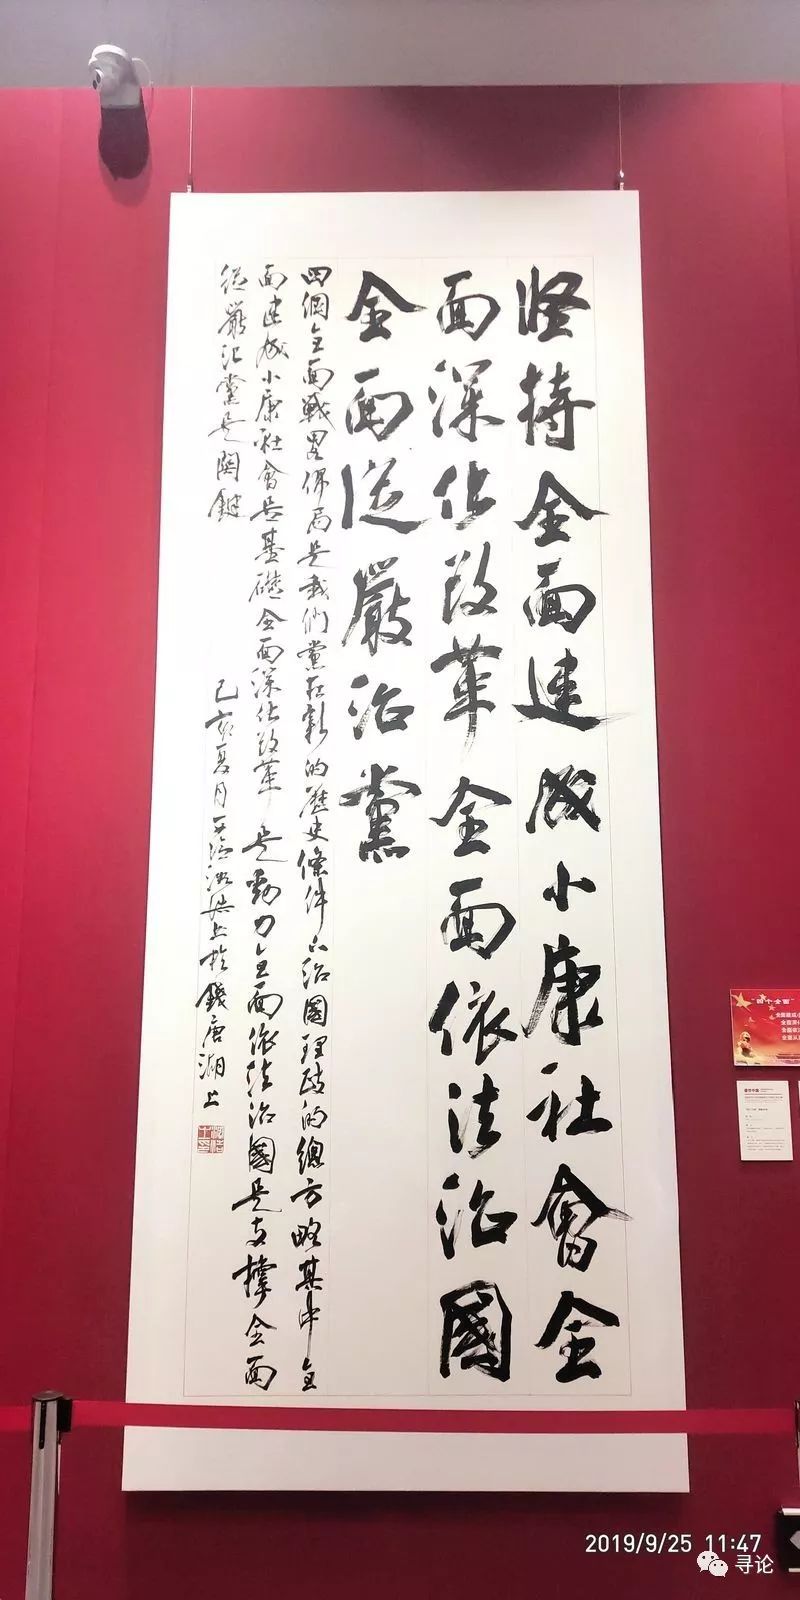 堅持全面建成小康社會全
面深化改革全面依法治國
全面從嚴治黨
四個全面戰略佈局是我們黨在新的歷史條件下治國理政的總方略其中全
面建成小康社會是基礎全面深化改革是動力全面依法治國是支撐全面
從嚴治黨是關鍵
己亥夏月 於錢唐湖上
"四个全面"
2019/9/25 11:47
寻论